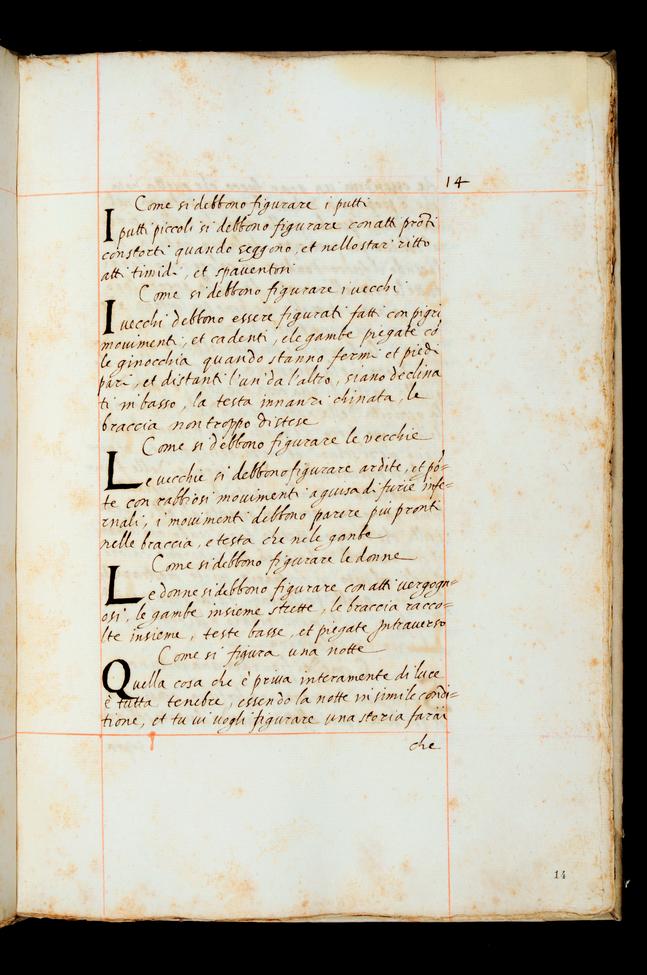 14
Come si debbono figurare i putti
I putti piccoli si debbono figurare con atti prōti
et constorti quando seggono, et nello star' ritto
atti timidi, et spaventosi
Come si debbono figurare i vecchi
I vecchi debbono essere figurati fatti con pigri
movimenti, et cadenti, ele gambe piegate cō
le ginocchia quando stanno fermi et piedi
pari, et distanti l'un' da l'altro, siano declina
ti in basso, la testa innanzi chinata, le
braccia non troppo distese
Come si debbono figurare le vecchie
Le vecchie si debbono figurare ardite, et prō=
te con rabbiosi movimenti a guisa di furie infe=
rnali, i movimenti debbono parere piu pronti
nelle braccia, e testa che nele gambe
Come si debbono figurare le donne
Le donne si debbono figurare con atti vergogn=
osi, le gambe insieme strette, le braccia racco=
lte insieme, teste basse, et piegate Intraverso
Come si figura una notte
Quella cosa che è priva interamente di luce
è tutta tenebre, essendo la notte in simile condi=
tione, et tu vi vogli figurare una storia farai
che
14